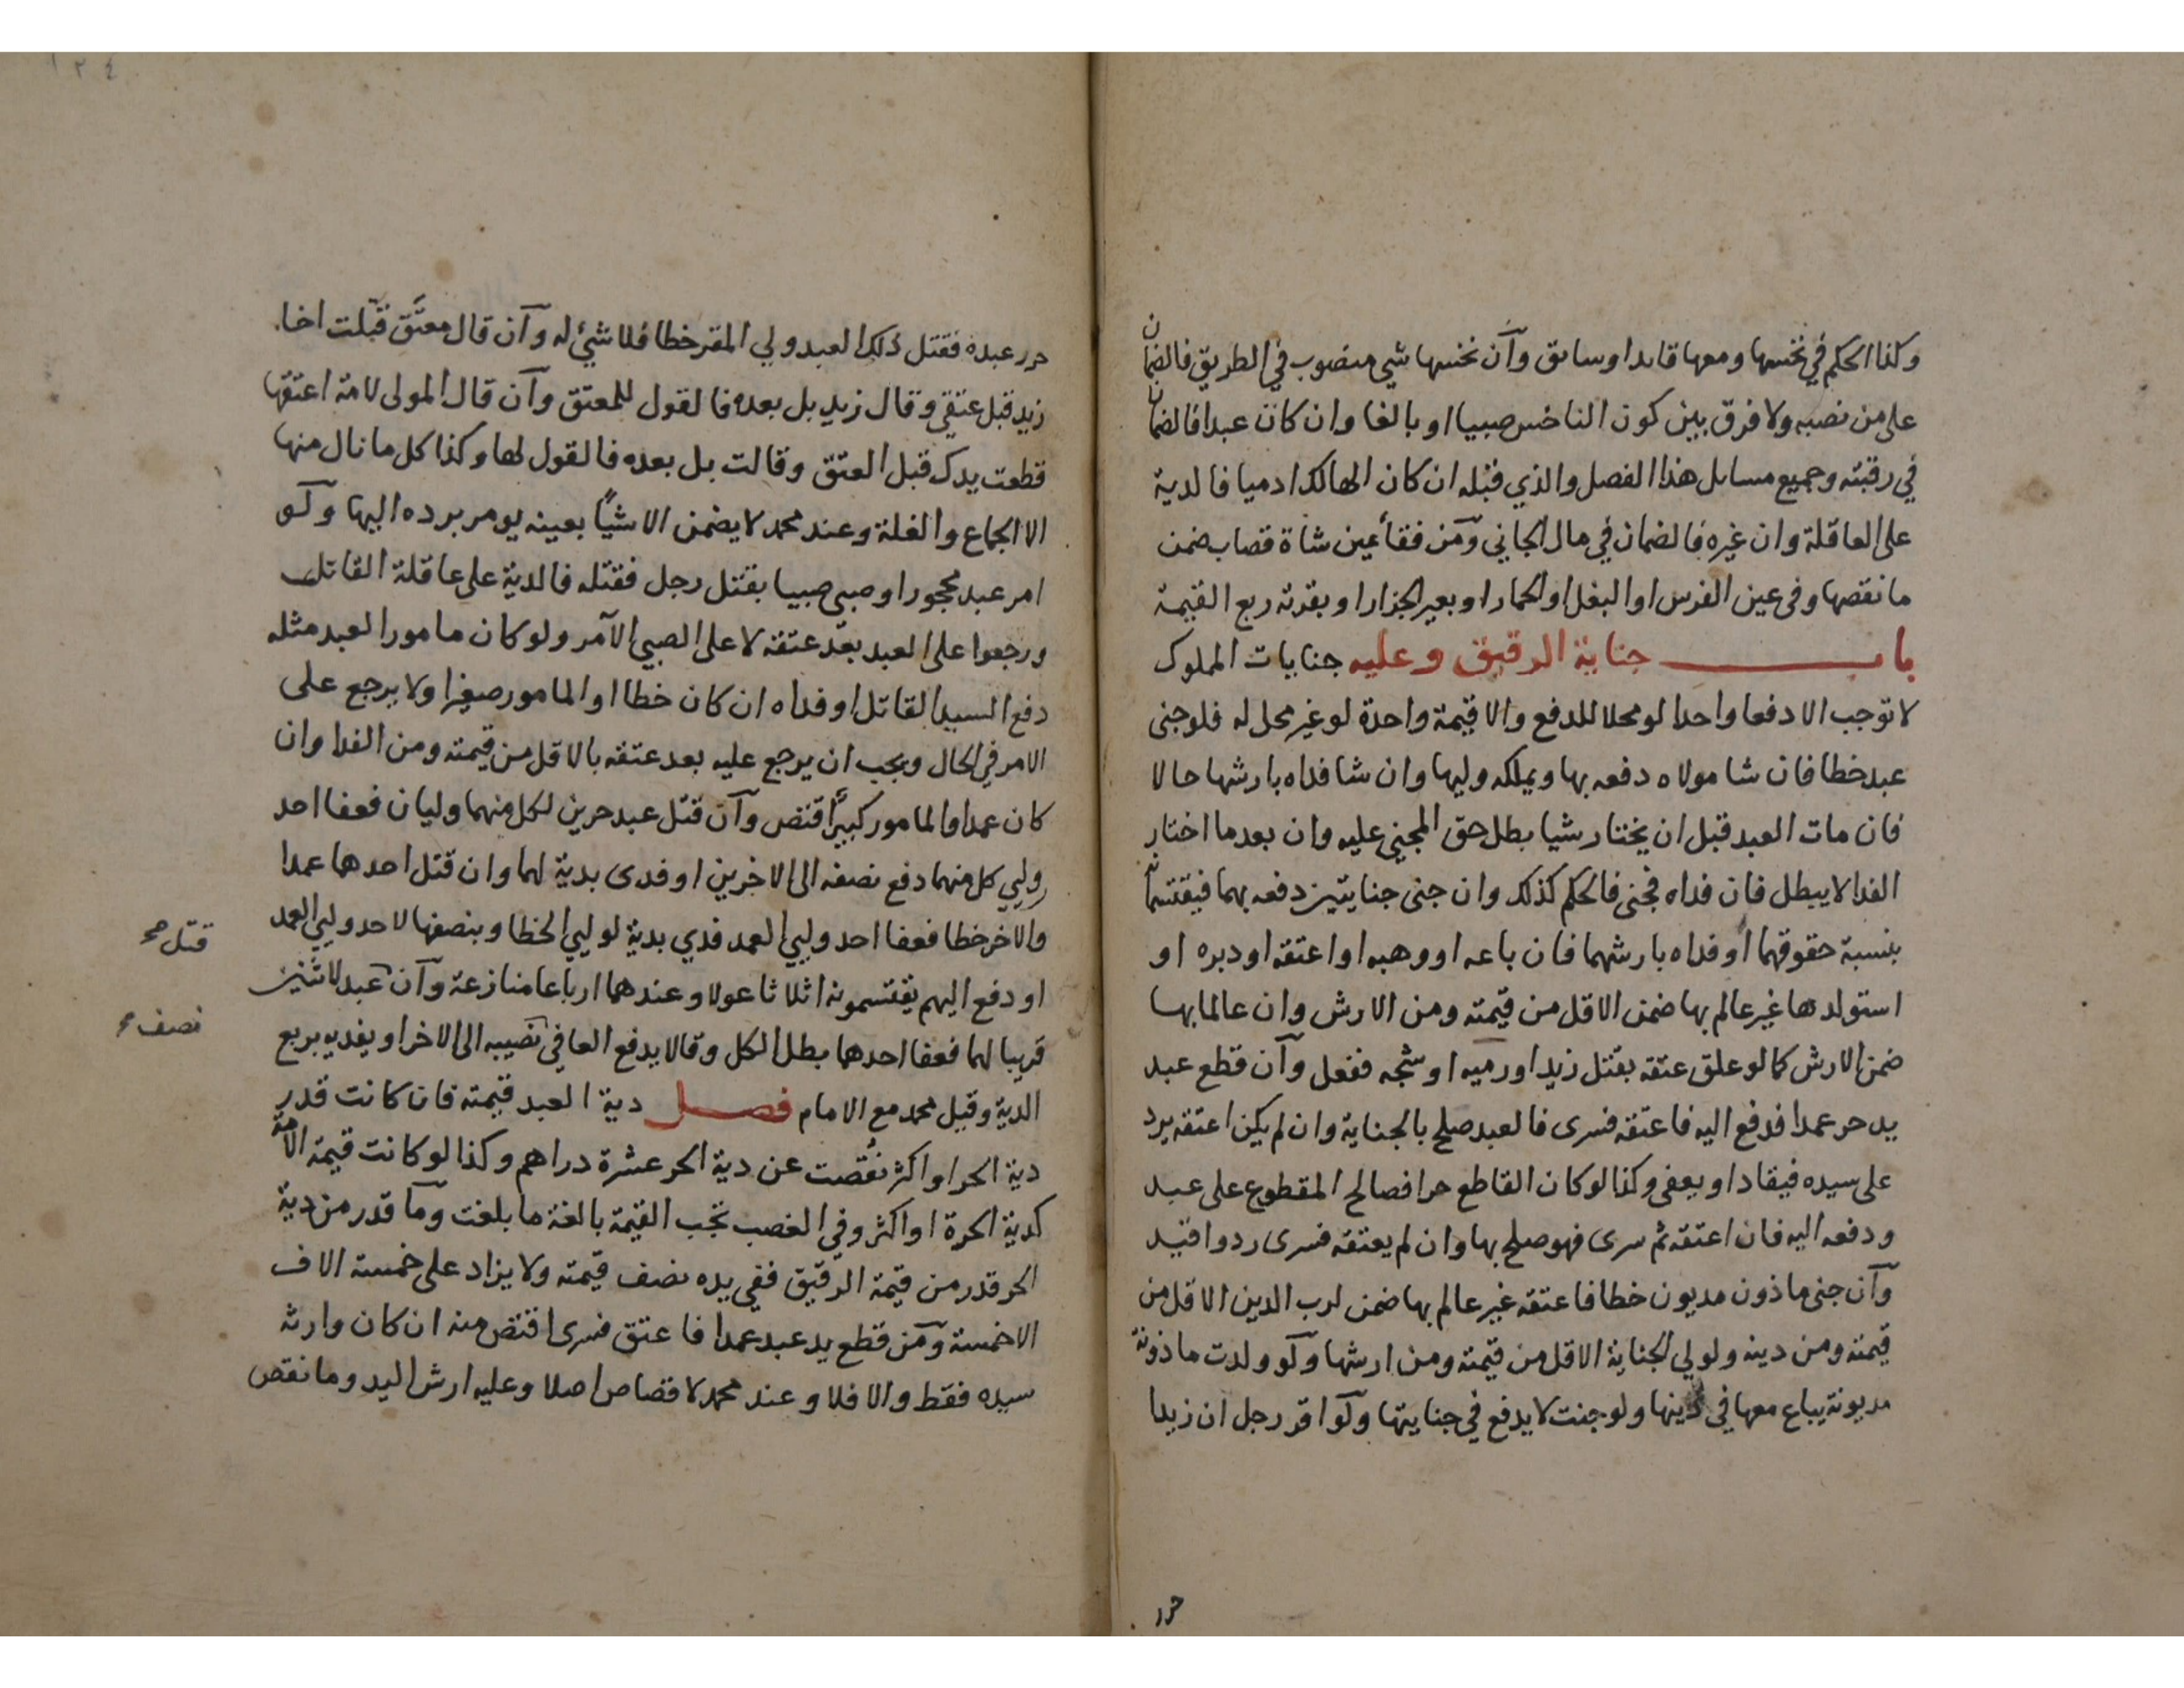 وكذا الحكم في نخسها ومعها قايدا وسايق وآن نخسها شي منصوب في الطريق فالضمان
على من نصبه ولا فرق بين كون الناخس صبيا او بالغا وان كان عبدا فالضمان
في رقبته وجميع مسايل هذا الفصل والذي قبله ان كان الهالك ادميا فالدية
على العاقلة وان غيره فالضمان في مال الجاني وآمن فقأ عين شاة قصاب ضمن
ما نقصها وفي عين الفرس او البغل او الحمار او بعير الجزار او بقرته ربع القيمة
باب جناية الرقيق وعليه جنايات المملوك
لا توجب الا دفعا واحدا لو محلا للدفع والا قيمة واحدة لو غير محل له فلو جنى
عبد خطا فان شا مولاه دفعه بها ويملكه وليها وان شا فداه بارشها حالا
فان مات العبد قبل ان يختار شيا بطل حق المجني عليه وان بعد ما اختار
الفدا لا يبطل فان فداه فجنى فالحكم كذلك وان جنى جنايتين دفعه بهما فيقتسمانه
بنسبة حقوقهما او فداه بارشهما فان باعه او وهبه او اعتقه او دبره او
استولدها غير عالم بها ضمن الاقل من قيمته ومن الارش وان عالما بها
ضمن الارش كما لو علق عتقه بقتل زيد او رميه او شجه ففعل وآن قطع عبد
يد حر عمدا فدفع اليه فاعتقه فسرى فالعبد صلح بالجناية وان لم يكن اعتقه يرد
على سيده فيقاد او يعفى وكذا لو كان القاطع حرا فصالح المقطوع على عبد
ودفعه اليه فان اعتقه ثم سرى فهو صلح بها وان لم يعتقه فسرى رد واقيد
وآن جنى ماذون مديون خطا فاعتقه غير عالم بها ضمن لرب الدين الاقل من
قيمته ومن دينه ولولي الجناية الاقل من قيمته ومن ارشها وآلو ولدت ماذونة
مديونة يباع معها في دينها ولو جنت لا يدفع في جنايتها وآلو اقر رجل ان زيدا
حرر
١٢٤
حرر عبده فقتل ذلك العبد ولي المقر خطا فلا شئ له وآن قال معتَق قتلت اخا
زيد قبل عتقي وقال زيد بل بعده فالقول للمعتق وآن قال المولى لامة اعتقها
قطعت يدك قبل العتق وقالت بل بعده فالقول لها وكذا كل ما نال منها
الا الجماع والغلة وعند محمد لا يضمن الا شيًا بعينه يومر برده اليها وآلو
امر عبد محجور او صبي صبيا بقتل رجل فقتله فالدية على عاقلة القاتل
ورجعوا على العبد بعد عتقه لا على الصبي الآمر ولو كان مامور العبد مثله
دفع السيد القاتل او فداه ان كان خطا او المامور صغيرا ولا يرجع على
الامر في الحال ويجب ان يرجع عليه بعد عتقه بالاقل من قيمته ومن الفدا وان
كان عمدا والمامور كبيرًا اقتص وآن قتل عبد حرين لكل منهما وليان فعفا احد
وليي كل منهما دفع نصفه الى الاخرين او فدى بدية لهما وان قتل احدهما عمدا
والاخر خطا فعفا احد وليي العمد فدي بدية لوليي الخطا وبنصفها لاحد وليي العمد
او دفع اليهم يقتسمونه اثلاثا عولا وعندهما ارباعا منازعة وآن عبد لاثنين
قتل صح
قريبا لهما فعفا احدهما بطل الكل وقالا يدفع العافي نصيبه الى الاخر او يفديه بربع
نصف
الدية وقيل محمد مع الامام فصل دية العبد قيمته فان كانت قدر
دية الحر او اكثر نُقصت عن دية الحر عشرة دراهم وكذا لو كانت قيمة الامة
كدية الحرة او اكثر وفي الغصب تجب القيمة بالغة ما بلغت وآما قدر من دية
الحر قدر من قيمة الرقيق ففي يده نصف قيمته ولا يزاد على خمسة الاف
الا خمسة وآمن قطع يد عبد عمدا فاعتق فسرى اقتص منه ان كان وارثه
سيده فقط والا فلا وعند محمد لا قصاص اصلا وعليه ارش اليد وما نقص